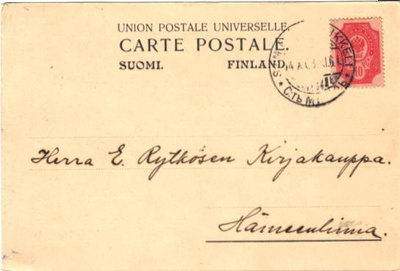 UNION POSTALE UNIVERSELLE.
CARTE POSTALE.
SUOMI. FINLAND.
Herra E. Rytkösen Kirjakauppa.
Hämeenlinna.